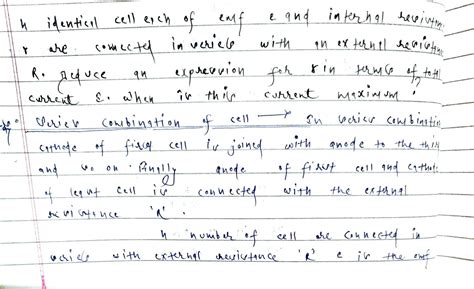 n identical cell each of emf e and internal resistance
r are connected in series with an external resistance
R. deduce an expression for in terms of total
current . when is this current maximum ?
Series combination of cell → In series combination
cathode of first cell is joined with anode to the
and so on . finally anode of first cell and
of cell is connected with the external
resistance 'R'.
n number of cell are connected in
series with external resistance 'R' e is the emf